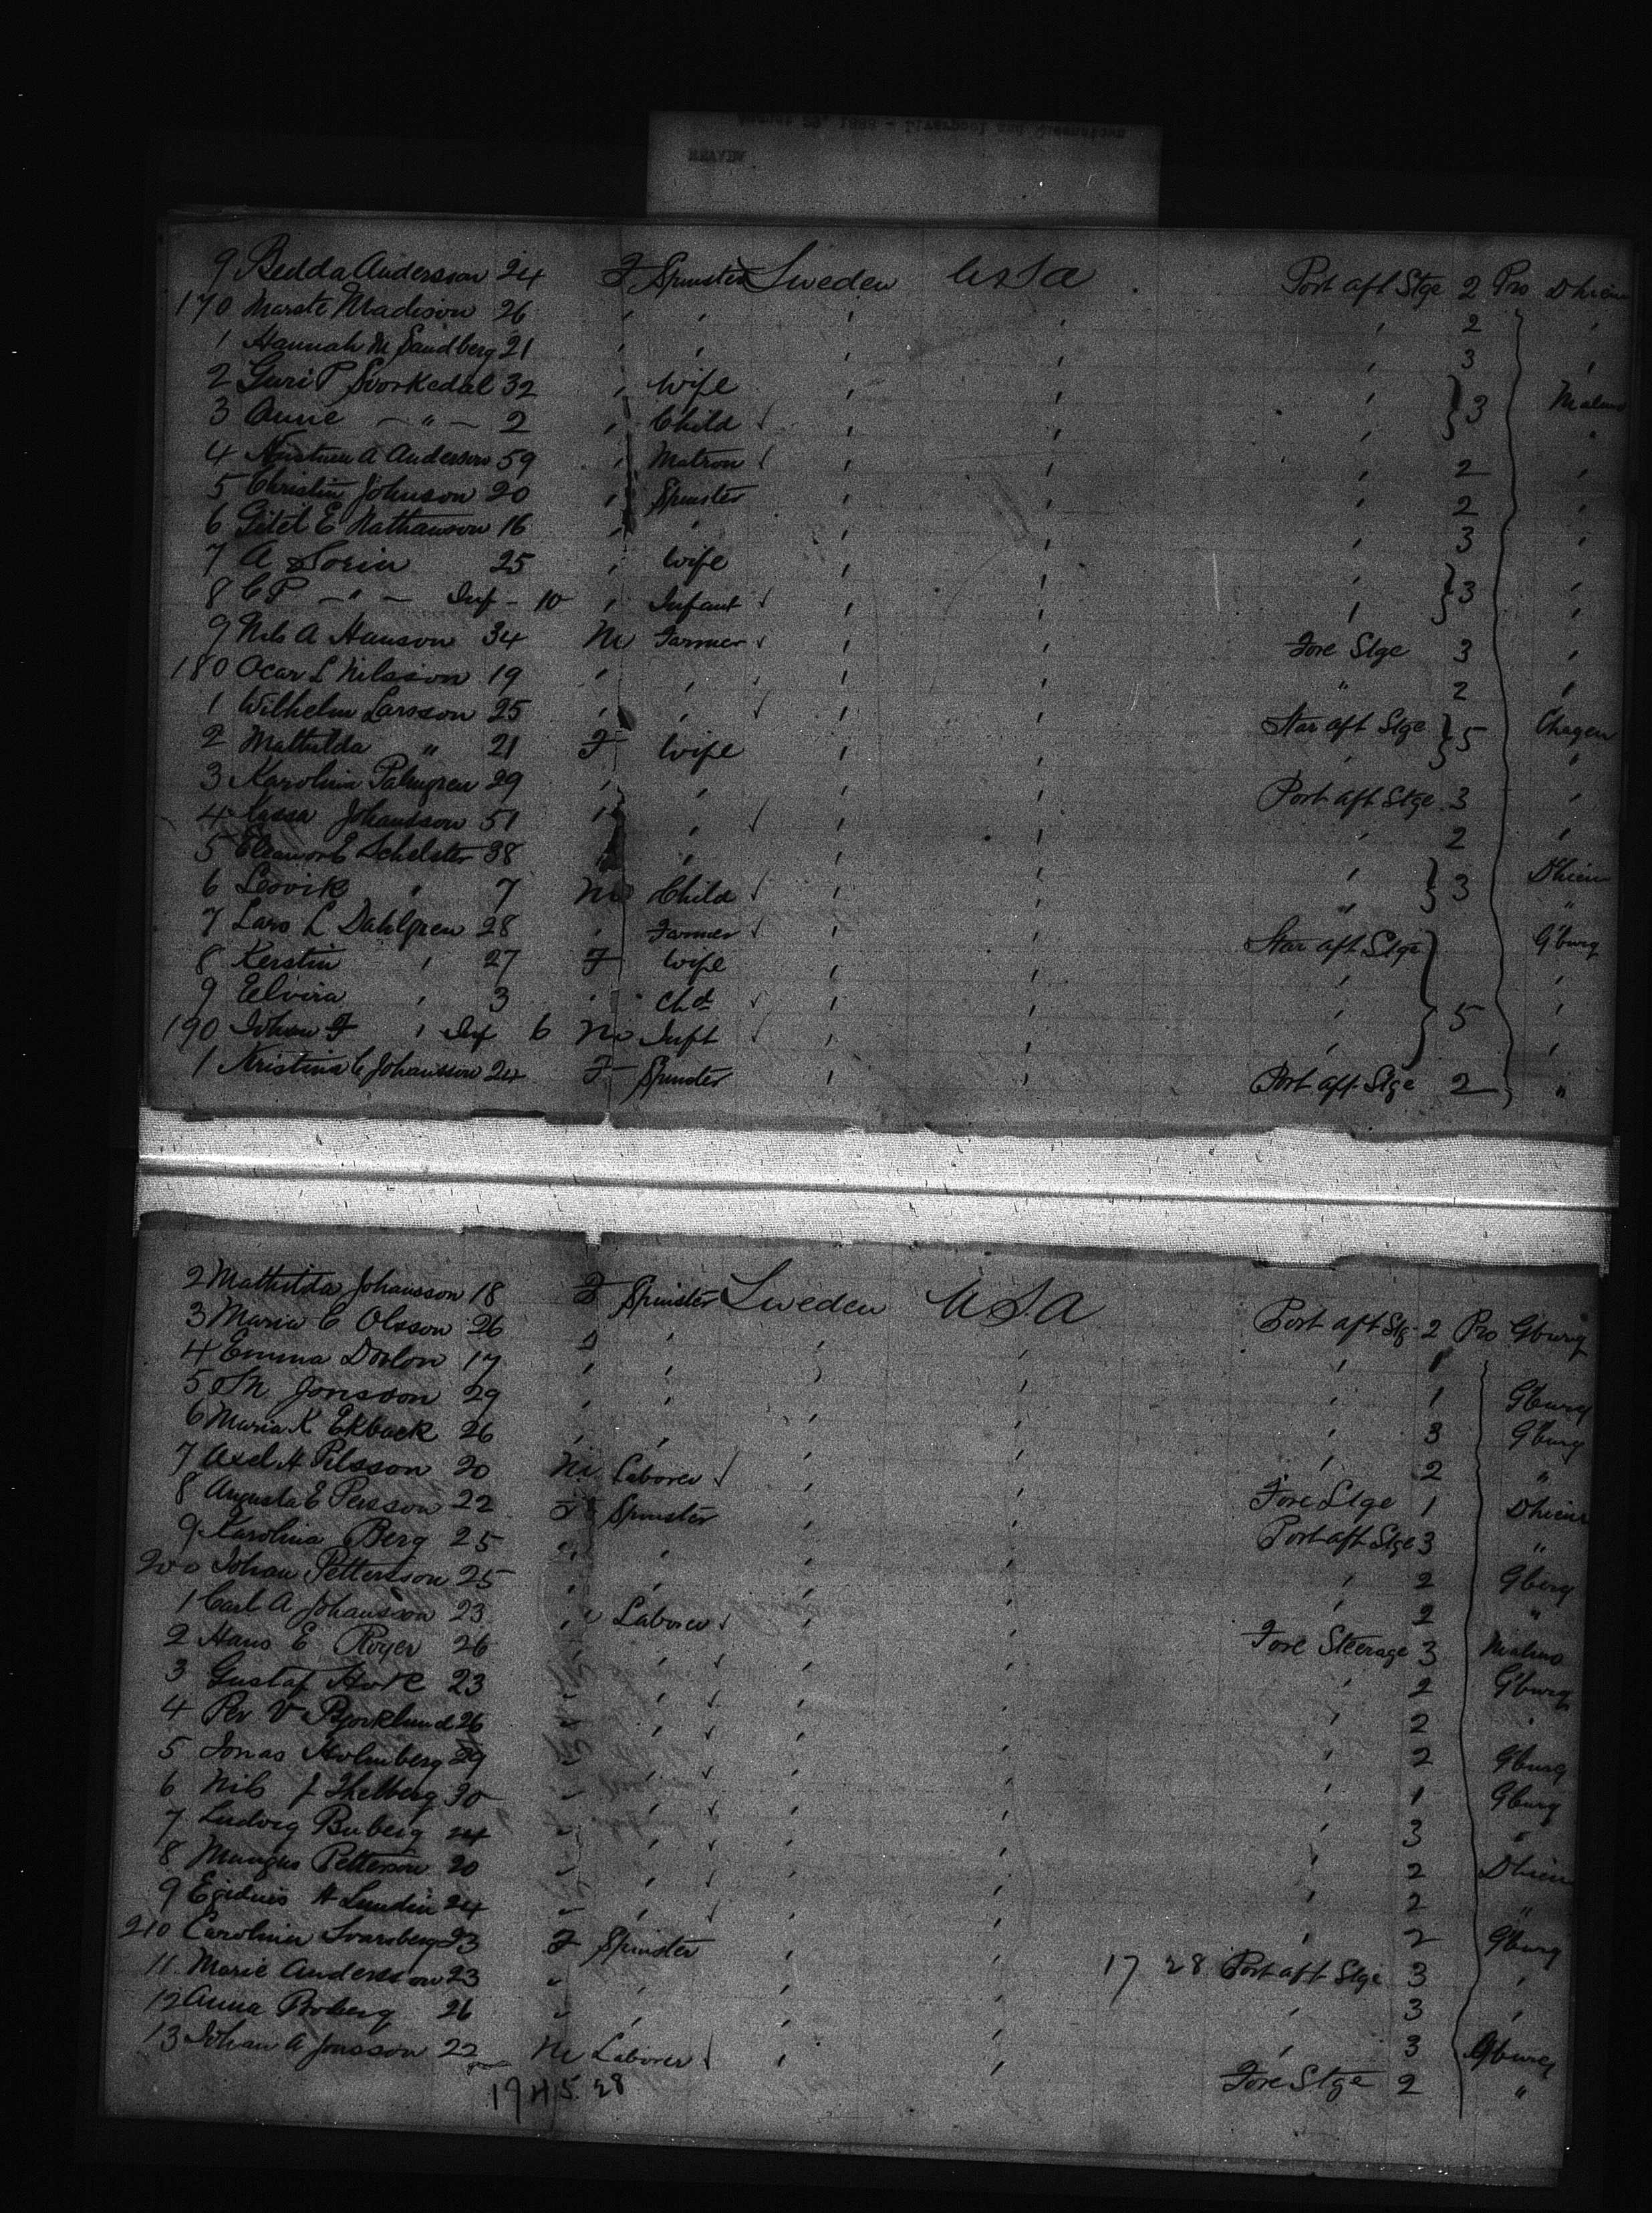 9 Bedda Andersson 24 F Spinster Sweden USA Port aft Stge 2 Pro Dhiem
170 Marste Madison 26 " " " " " 2 "
1 Hannah M Sandberg 21 " " " " " 3 "
2 Guri P Svorkedal 32 " Wife " " " } 3 Malmo
3 Anne — " — 2 " Child " " " "
4 A Anderson 59 " Matron " " " 2 "
5 Christin Johnson 20 " Spinster " " " 2 "
6 Gitel E Nathanson 16 " " " " " 3 "
7 A Sorin 25 " Wife " " " } 3 "
8 C P — " — Inf - 10 " Infant " " " "
9 Nils A Hanson 34 M Farmer " " Fore Stge 3 "
180 Ocar L Nilsson 19 " " " " " 2 "
1 Wilhelm Larsson 25 " " " " Star aft Stge } 5 Chagen
2 Mathilda " 21 F Wife " " " "
3 Karolina Palmgren 29 " " " " Port aft Stge 3 "
4 Kassa Johansson 51 " " " " " 2 "
5 Eleanor E Schelster 38 " " " " " } 3 Dhiem
6 Lovik " 7 M Child " " " "
7 Lars L Dahlgren 28 " Farmer " " Star aft Stge } 5 G'burg
8 Kerstin " 27 F Wife " " " "
9 Eelvira " 3 " Chd " " " "
190 Johan F " Inf 6 M Inft " " " "
1 Kristina C Johansson 24 F Spinster " " Port aft Stge 2 "
2 Mathilda Johansson 18 F Spinster Sweden USA Port aft Stg 2 Pro Gburg
3 Maria C Olsson 26 " " " " " 1
4 Emma Dorlon 17 " " " " " 1 Gburg
5 M Jonsson 29 " " " " " 3 Gburg
6 Maria K Ekback 26 " " " " " 2 "
7 Axel H Pilsson 20 M Laborer " " Fore Stge 1 Dhiem
8 Augusta E Persson 22 F Spinster " " Port aft Stge 3 "
9 Karolina Berg 25 " " " " " 2 Gberg
200 Johan Pettersson 25 " " " " " 2 "
1 Carl A Johansson 23 " Laborer " " Fore Steerage 3 Malmo
2 Hans E Royer 26 " " " " " 2 Gburg
3 Gustaf 23 " " " " " 2 "
4 Per V Bjorklund 26 " " " " " 2 Gburg
5 Jonas Holmberg 29 " " " " " 1 Gburg
6 Nils J Thelberg 30 " " " " " 3 "
7 Ludvig Buberg 24 " " " " " 2 Dhiem
8 Mangus Petterson 20 " " " " " 2 "
9 Egidius A Lundin 24 " " " " " 2 Gburg
210 Carolina Svarsberg 23 F Spinster " " 17 28 Port aft Stge 3 "
11 Marie Andersson 23 " " " " " 3 "
12 Anna Broberg 26 " " " " " 3 Gburg
13 Johan A Jonsson 22 M Laborer " " Fore Stge 2 "
17 H 5. 28